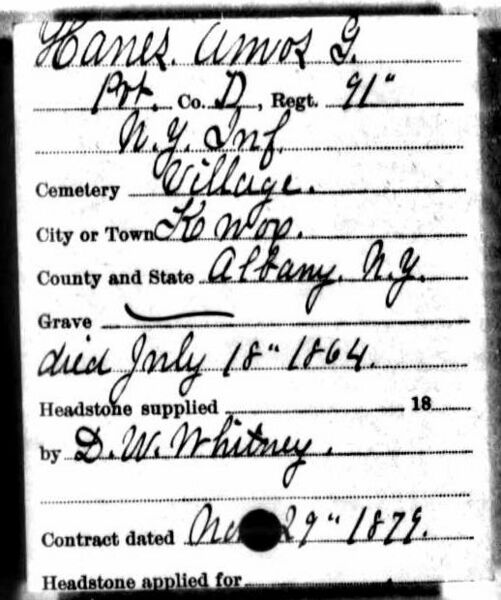 Hanes. Amos G.
Pvt. Co. D, Regt. 91"
N.Y. Inf.
Cemetery Village.
City or Town Knox.
County and State Albany. N.Y.
Grave
died July 18" 1864.
Headstone supplied 18
by D. W. Whitney.
Contract dated 29" 1879.
Headstone applied for